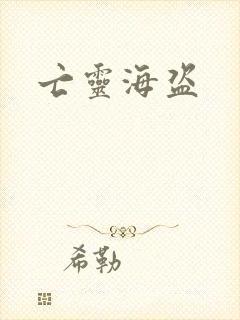 亡靈海盜
希勒